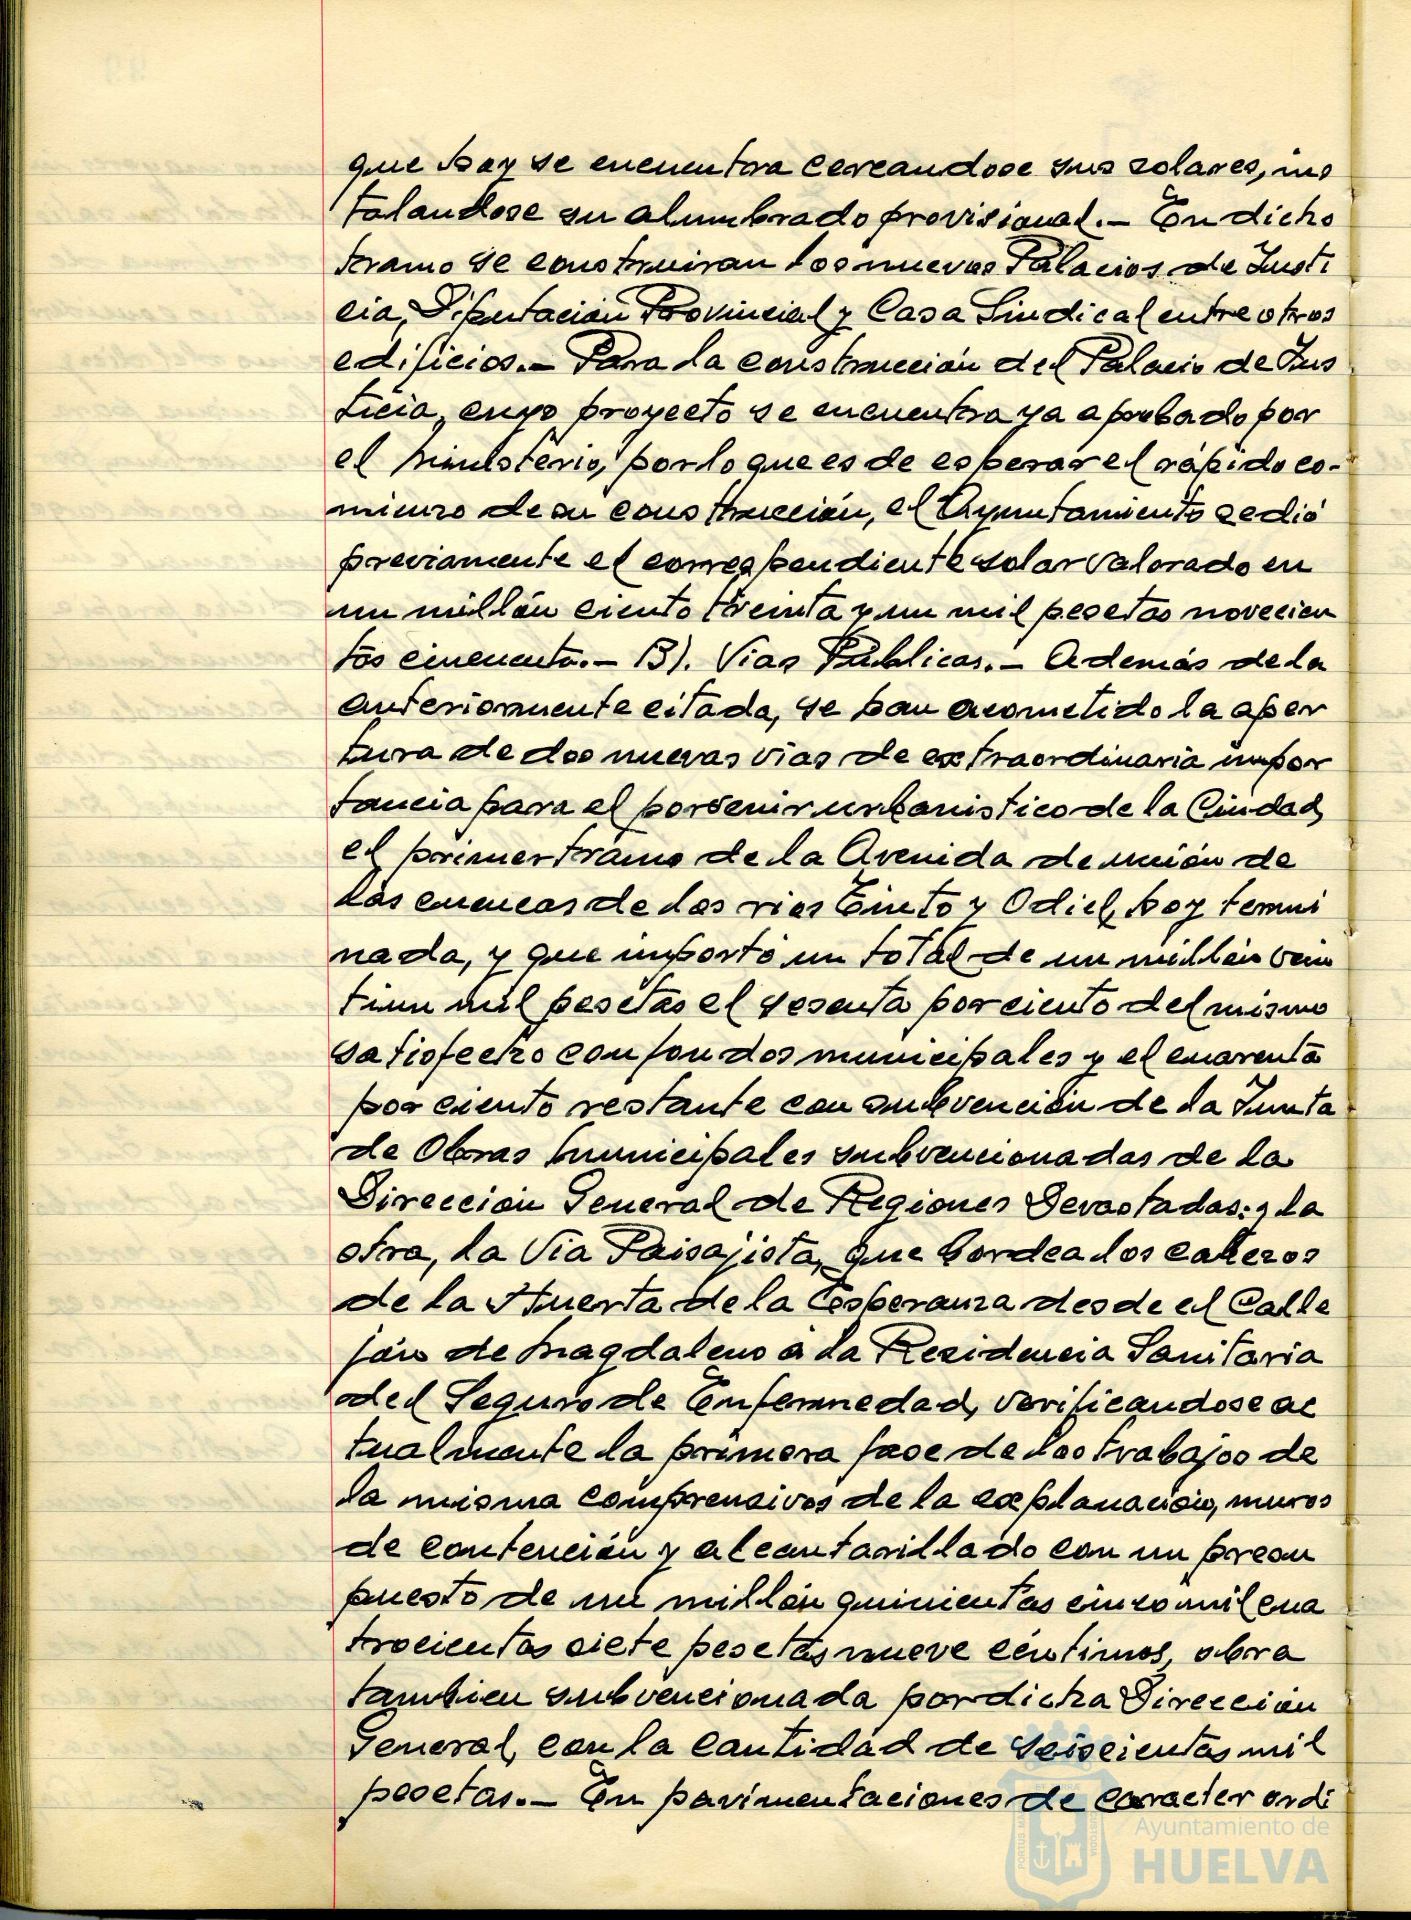 que hoy se encuentra cercandose sus solares, ins
talandose su alumbrado provisional.- En dicho
tramo se construiran los nuevos Palacios de Justi
cia, Diputación Provincial y Casa Sindical entre otros
edificios.- Para la construcción del Palacio de Jus
ticia, cuyo proyecto se encuentra ya aprobado por
el Ministerio, por lo que es de esperar el rápido co-
mienzo de su construcción, el Ayuntamiento cedió
previamente el correspondiente solar valorado en
un millón ciento treinta y un mil pesetas novecien
tas cincuenta.- B). Vias Públicas.- Además de la
anteriormente citada, se han acometido la aper
tura de dos nuevas vias de extraordinaria impor
tancia para el porvenir urbanistico de la Ciudad,
el primer tramo de la Avenida de unión de
las cuencas de los rios Tinto y Odiel, hoy termi
nada, y que importó un total de un millón vein
tiun mil pesetas el sesenta por ciento del mismo
satisfecho con fondos municipales y el cuarenta
por ciento restante con subvención de la Junta
de Obras Municipales subvencionadas de la
Dirección General de Regiones Devastadas; y la
otra, la Via Paisajista, que bordea los cabezos
de la Huerta de la Esperanza desde el Calle
jón de Magdaleno a la Residencia Sanitaria
del Seguro de Enfermedad, verificandose ac
tualmente la primera fase de los trabajos de
la misma comprensivos de la explanación, muros
de contención y alcantarillado con un presu
puesto de un millón quinientas cinco mil cua
trocientas siete pesetas nueve céntimos, obra
tambien subvencionada por dicha Dirección
General, con la cantidad de seiscientas mil
pesetas.- En pavimentaciones de caracter ordi
Ayuntamiento de
HUELVA